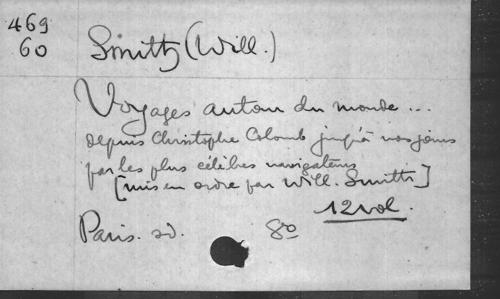 469
60
Smith (Will.)
Voyages autour du monde ...
depuis Christophe Colomb jusqu'à nos jours
par les plus célèbres navigateurs
[mis en ordre par Will. Smith]
12 vol.
Paris. sd. 8º